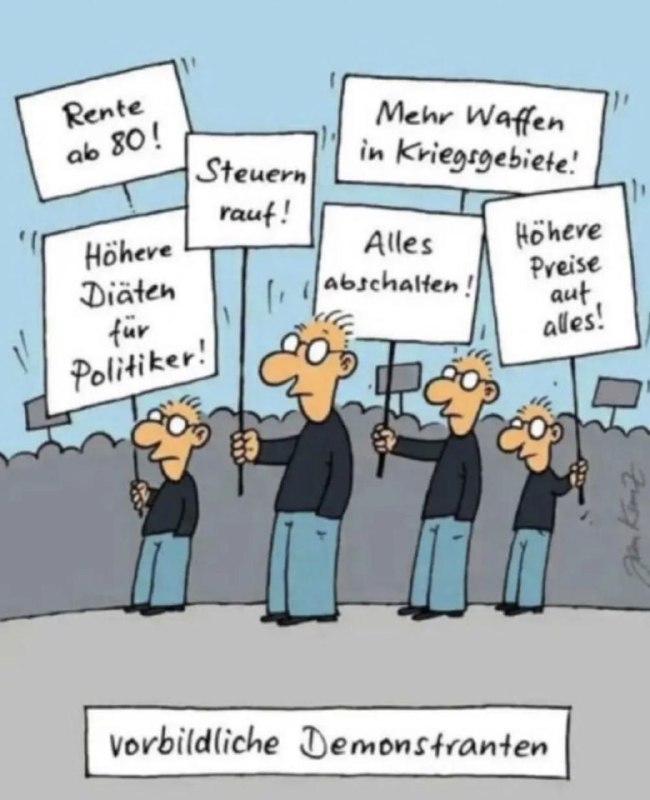 Rente
ab 80!
Mehr Waffen
in Kriegsgebiete!
Steuern
rauf!
Höhere
Diäten
für
Politiker!
Alles
abschalten!
Höhere
Preise
auf
alles!
vorbildliche Demonstranten